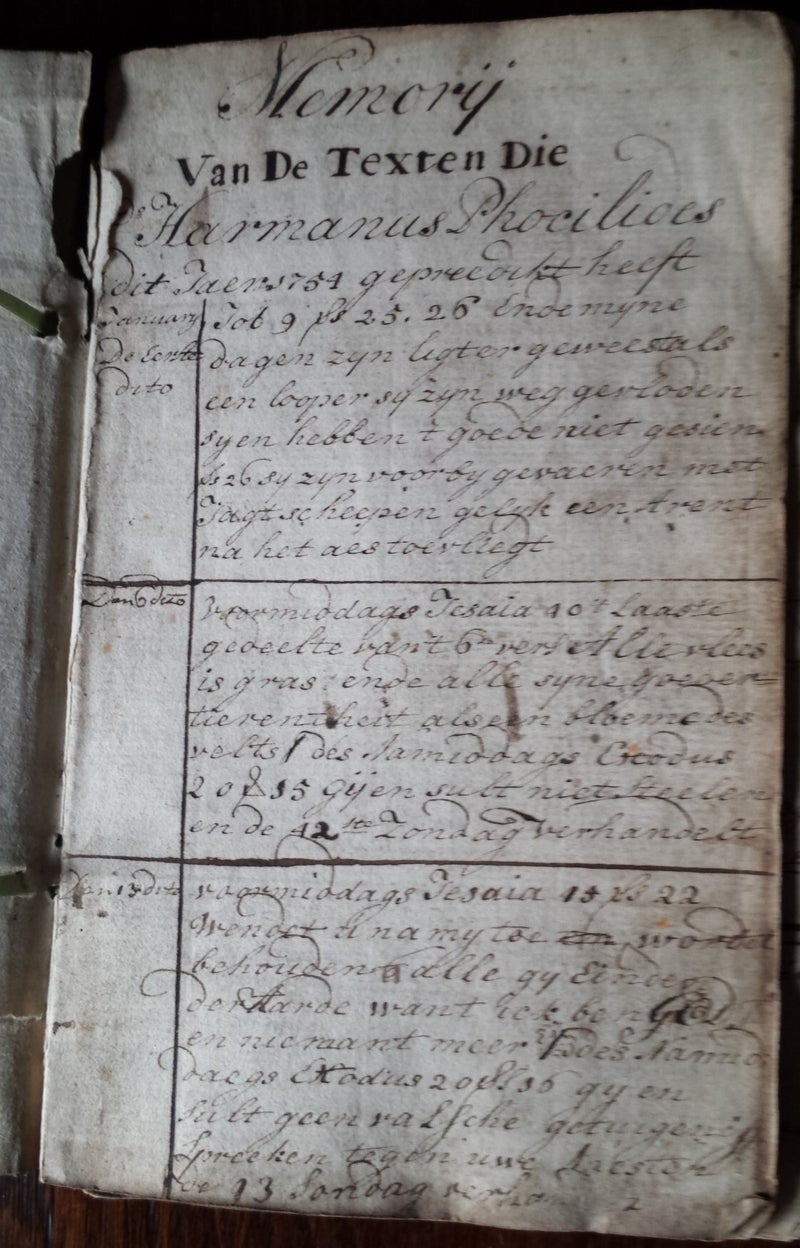 Memorij
Van De Texten Die
Ds Harmanus Phocilides
dit Jaer 1754 gepreedickt heeft
January Job 9 ßs 25. 26 Ende myne
De Eerste dagen zyn ligter geweest als
dito een looper sy zyn weg gevloden
sy en hebben t goede niet gesien
ßs 26 sy zyn voorby gevaeren met
Jagtscheepen gelyk een Arent
na het aes toe vliegt
Den 6 dito voormiddags Jesaia 40t Laaste
gedeelte vant 6de vers Alle vlees
is gras ende alle syne goeder=
tierentheit als een bloeme des
velts des Namiddags Exodus
20 ß 15 Gij en sult niet steelen
en de 42ste Zondag verhandelt
Den 13 dito voormiddags Jesaia 45 ßs 22
Wendet u na my toe wordet
behouden alle gy Einden
der Aarde want ick ben Godt
en niemant meer des Namid
daegs Exodus 20 ßs 16 gy en
sult geen valsche getuigenis
spreeken tegen uwe Naesten
de 43 Sondag